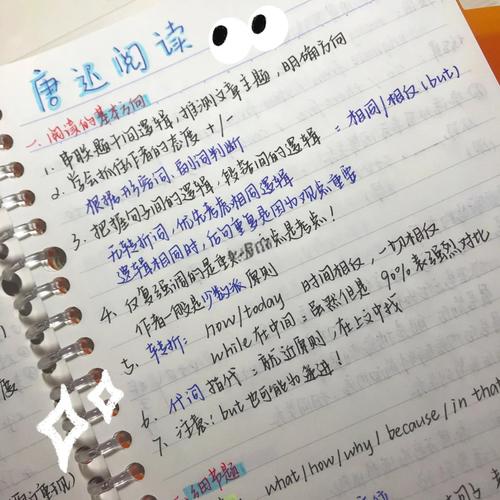 唐迟阅读
一、阅读的基本方向
1. 串联题干间逻辑，推测文章主题，明确方向
2. 学会抓住作者的态度 +/-
根据形容词、副词判断
3. 把握句子间的逻辑，段落间的逻辑 = 相同/相反(but)
无转折词，优先考虑相同逻辑
逻辑相同时，后句重复是因为观点重要
4. 反复强调的是重点是考点！
作者一般是少数派原则
5. 转折： now/today 时间相反，一切相反
while在中间：虽然但是 90%表强烈对比
6. 代词指代：就近原则，在上文中找
7. 注意：but也可能为递进！
细节题
what/how/why/because/in that